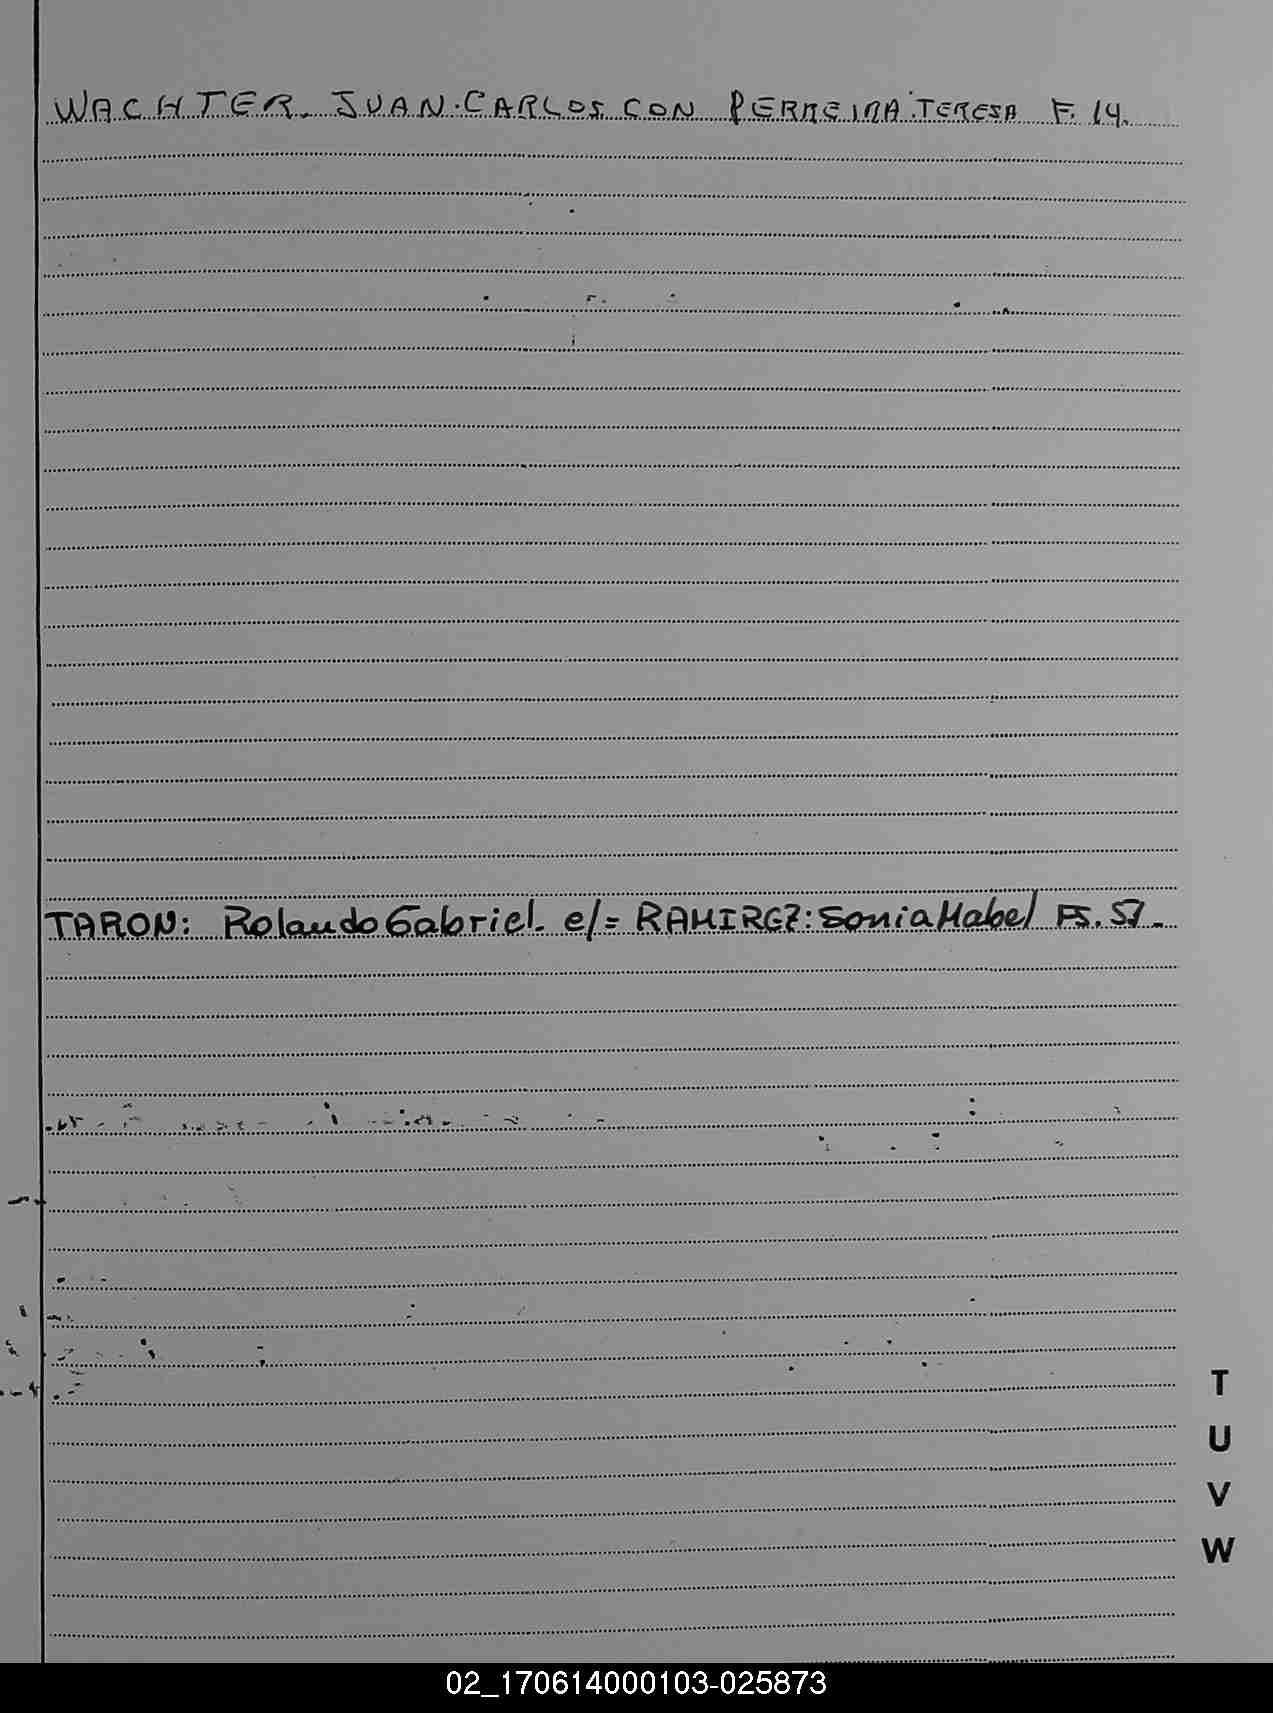 WACHTER. JUAN.CARLOS. CON PERREIRA TERESA F. 14.
TARON: Rolando Gabriel. e/= RAMIREZ: Sonia Mabel FS. 57.
T
U
V
W
02_170614000103-025873